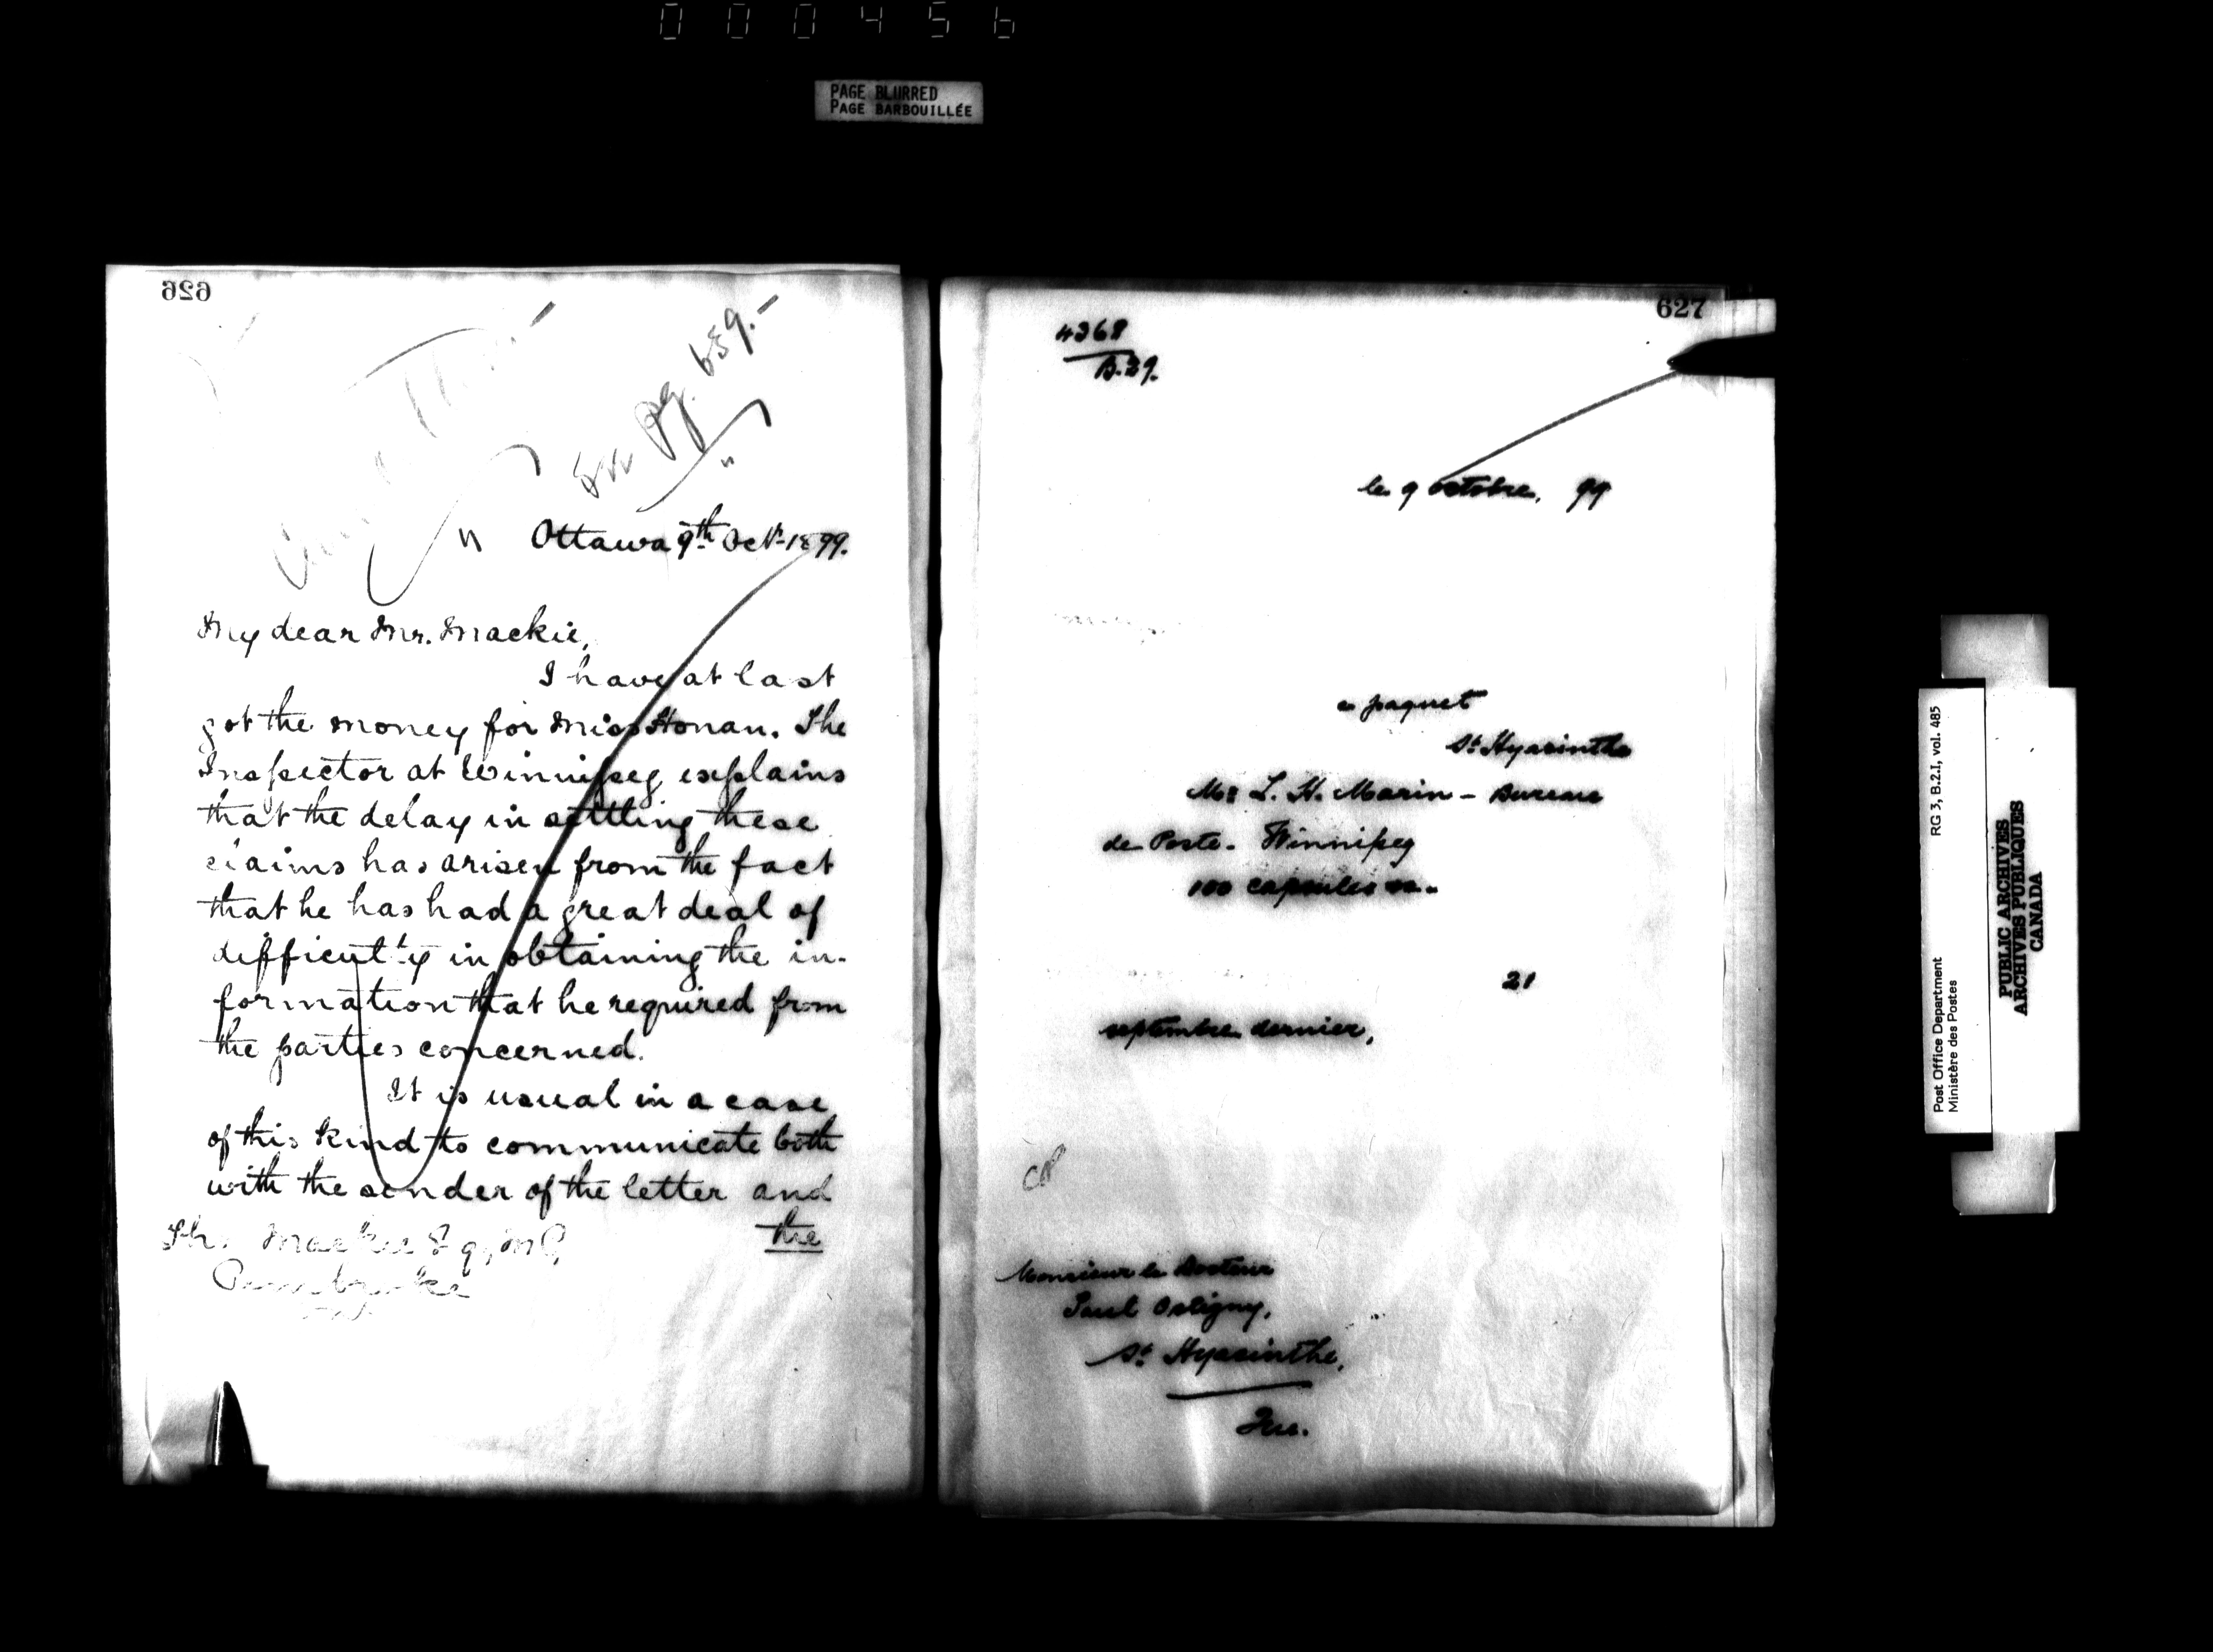 000456
PAGE BLURRED
PAGE BARBOUILLÉE
626
See Pg. 659.-
Ottawa 9th Oct. 1899.
My dear Mr. Mackie,
I have at last
got the money for Miss Honan. The
Inspector at Winnipeg explains
that the delay in settling these
claims has arisen from the fact
that he has had a great deal of
difficulty in obtaining the in-
formation that he required from
the parties concerned.
It is usual in a case
of this kind to communicate both
with the sender of the letter and
the
Mackie Esq, M.P,
Pembroke
627
4368
B.29.
le 9 octobre, 99
paquet
St. Hyacinthe
Mr L. H. Marin - Bureau
de Poste. Winnipeg
100 capsules
21
septembre dernier,
Monsieur le Docteur
Paul Ostigny,
St. Hyacinthe,
Que.
RG 3, B.2.I, vol. 485
Post Office Department
Ministère des Postes
PUBLIC ARCHIVES
ARCHIVES PUBLIQUES
CANADA